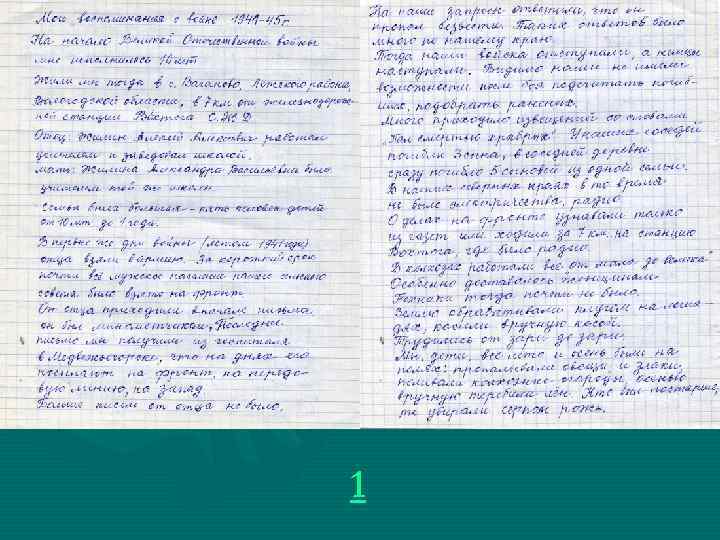 Мои воспоминания о войне 1941-45г
На начало Великой Отечественной войны
мне исполнилось 10 лет
Жили мы тогда в с. Ваганово, района,
Вологодской области, в 7 км от железнодорож-
ной станции Вохтога С.Ж.Д
Отец: Жилин Алексей работал
учителем и заведовал школой.
мать: Жилина Александра Васильевна была
учителем той же школы
Семья была большая - пять человек детей
от 10 лет до 1 года.
В первые же дни войны (летом 1941 года)
отца взяли в армию. За короткий срок
почти всё мужское население нашего
совета было взято на фронт
От отца приходили вначале письма.
он был миномётчиком. Последнее
письмо мы получили из госпиталя
в Медвежьегорске, что на днях его
посылают на фронт, на передо-
вую линию, на запад
Больше писем от отца не было.
На наши запросы ответили, что он
пропал безвести. Таких ответов было
много по нашему краю.
Тогда наши войска отступали, а немцы
наступали. Видимо наши не имели
возможности после боя подсчитать погиб-
ших, подобрать раненых.
Много приходило извещений со словами
"Пал смертью храбрых". У наших соседей
погибли 3 сына, в соседней деревне
сразу погибло 5 сыновей из одной семьи.
В наших северных краях в то время
не было электричества, радио.
О делах на фронте узнавали только
из газет или ходили за 7 км. на станцию
Вохтога, где было радио.
В колхозах работали все от мала до велика
Особенно доставалось женщинам.
Техники тогда почти не было.
Землю обрабатывали плугом на лоша-
дях, косили вручную косой.
Трудились от зари до зари.
Мы, дети, все лето и осень были на
полях: пропалывали овощи и злаки,
поливали колхозные огороды, осенью
вручную теребили лён. Кто был постарше,
те убирали серпом рожь.
1